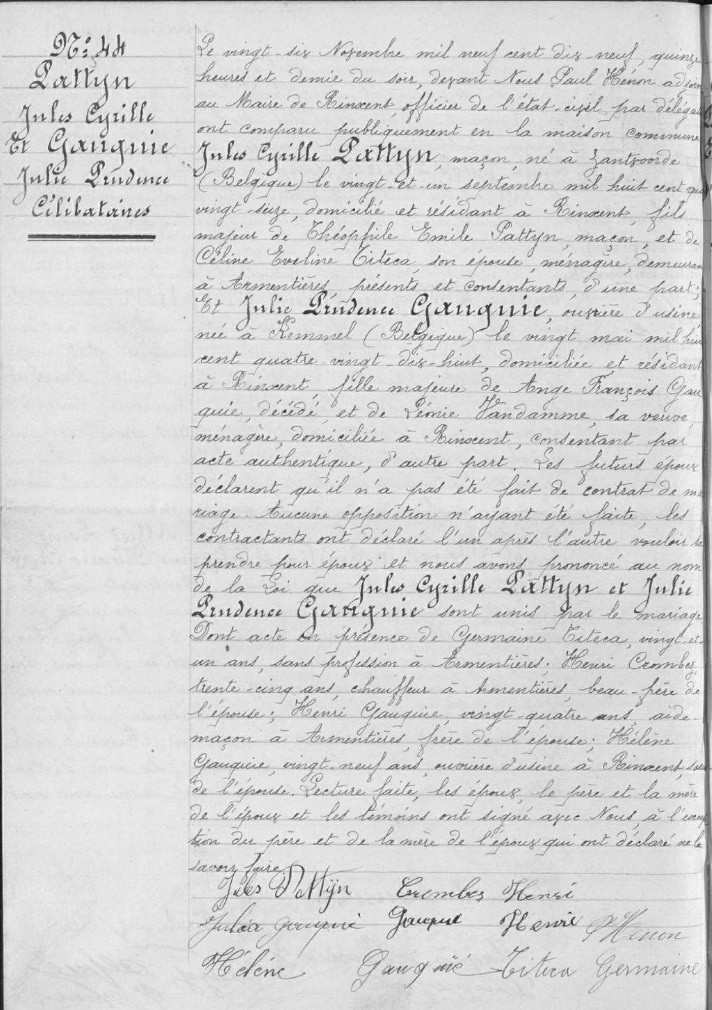 N°: 44
Pattyn
Jules Cyrille
Et Gauquie
Julie Prudence
Célibataires
Le vingt six Novembre mil neuf cent dix neuf, quinze
heures et demie du soir, devant Nous Paul Hénon adjoin
au Maire de Rinxent, officier de l'état-civil, par déléga
ont comparu publiquement en la maison commune
Jules Cyrille Pattyn, maçon, né à Zantvoorde
(Belgique) le vingt et un septembre mil huit cent qua
vingt seize, domicilié et résidant à Rinxent, fils
majeur de Théophile Emile Pattyn, maçon, et de
Céline Eveline Titeca, son épouse, ménagère, demeuran
à Armentières, présents et consentants, d'une part;
Et Julie Prudence Gauquie, ouvrière d'usine
née à Kemmel (Belgique) le vingt mai mil hui
cent quatre vingt dix-huit, domiciliée et résidant
à Rinxent, fille majeure de Ange François Gau
quie, décédé, et de Léonie Vandamme, sa veuve
ménagère, domiciliée à Rinxent, consentant par
acte authentique, d'autre part. Les futurs époux
déclarent qu'il n'a pas été fait de contrat de ma
riage. Aucune opposition n'ayant été faite, les
contractants ont déclaré l'un après l'autre vouloir se
prendre pour époux et nous avons prononcé au nom
de la Loi que Jules Cyrille Pattyn et Julie
Prudence Gauquie sont unis par le mariage
Dont acte en présence de Germaine Titeca, vingt-et-
un ans, sans profession à Armentières; Henri Crombez,
trente-cinq ans, chauffeur à Armentières, beau-frère de
l'épouse; Henri Gauquie, vingt quatre ans, aide-
maçon à Armentières frère de l'épouse; Hélène
Gauquie, vingt neuf ans, ouvrière d'usine à Rinxent, sœur
de l'épouse. Lecture faite, les époux le père et la mère
de l'époux et les témoins ont signé avec Nous à l'excep
tion du père et de la mère de l'époux qui ont déclaré ne le
savoir faire
Jules Pattÿn Crombez Henri
Julia Gauquie Henri PHénon
Hélène Gauquié Titeca Germaine